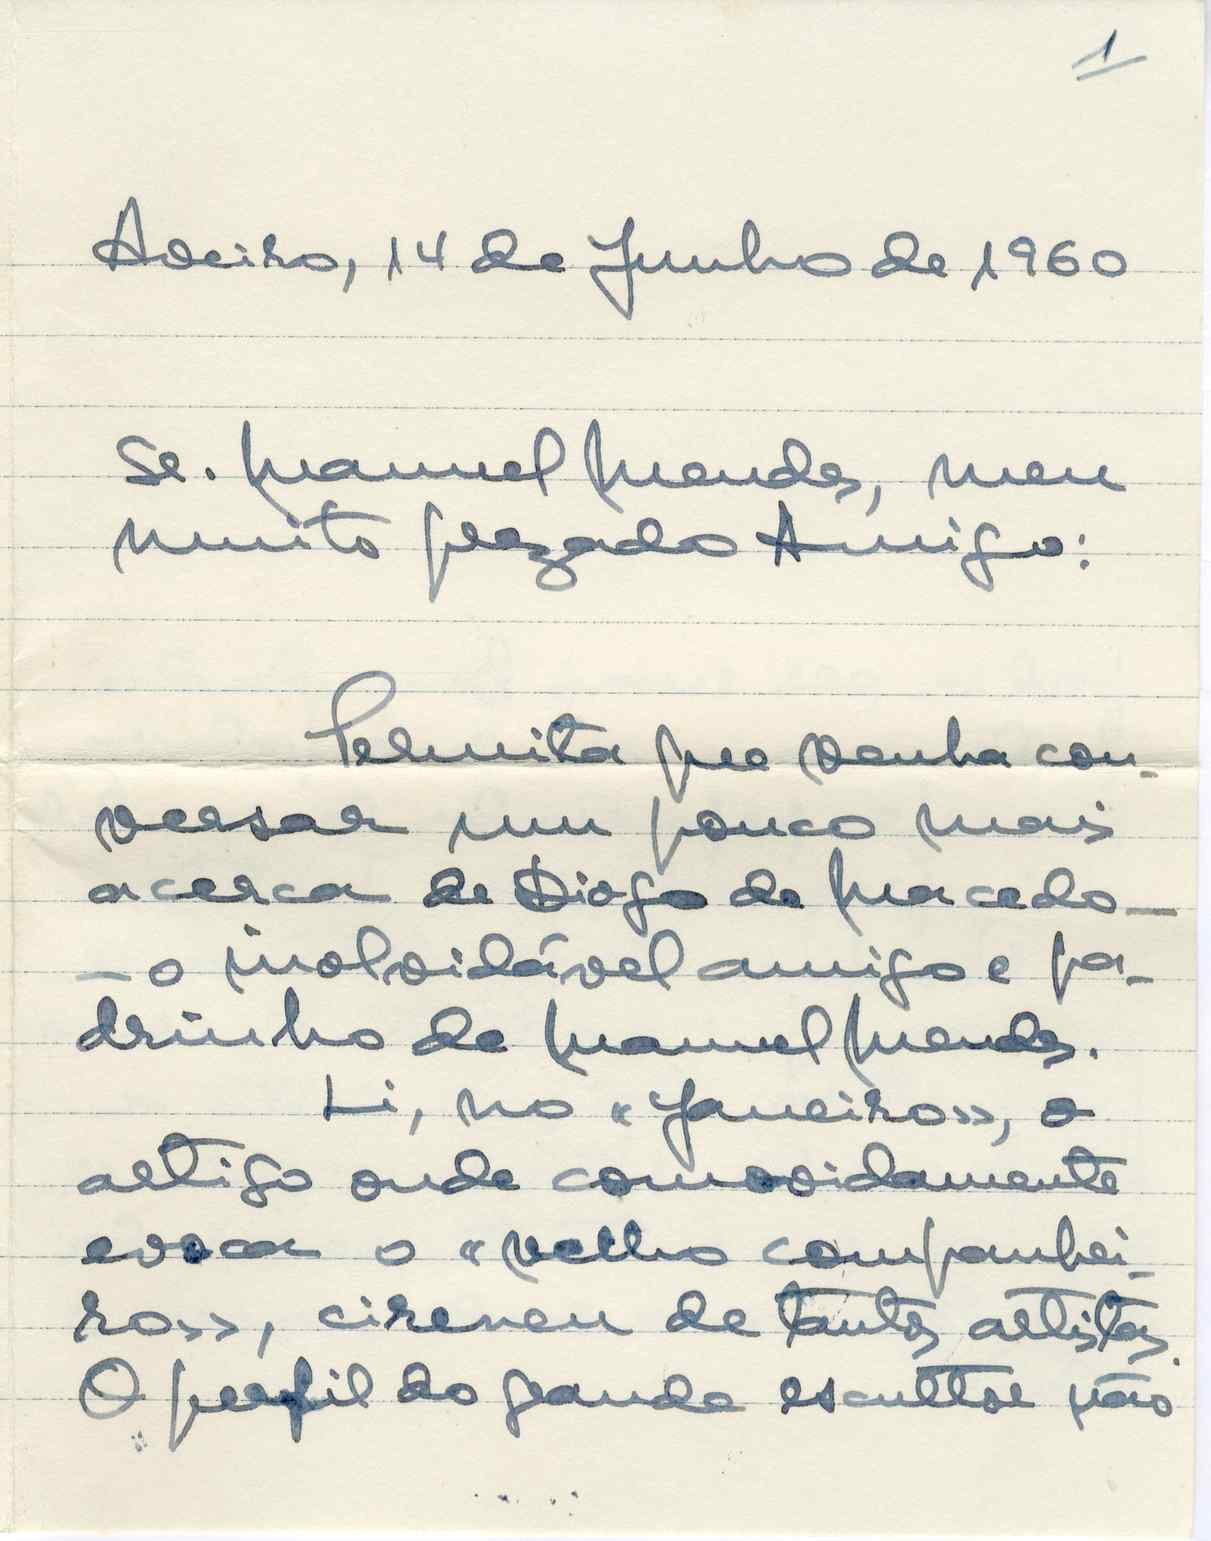 1
Aveiro, 14 de Junho de 1960
Sr. Manuel Mendes, meu
muito prezado Amigo:
Permita que venha con-
versar um pouco mais
acerca de Diogo de Macedo —
— o inolvidável amigo e pa-
drinho de Manuel Mendes.
Li, no «Janeiro», o
artigo onde comovidamente
evoca o «velho companhei-
ro», cireneu de tantos artistas.
O perfil do grande escultor não